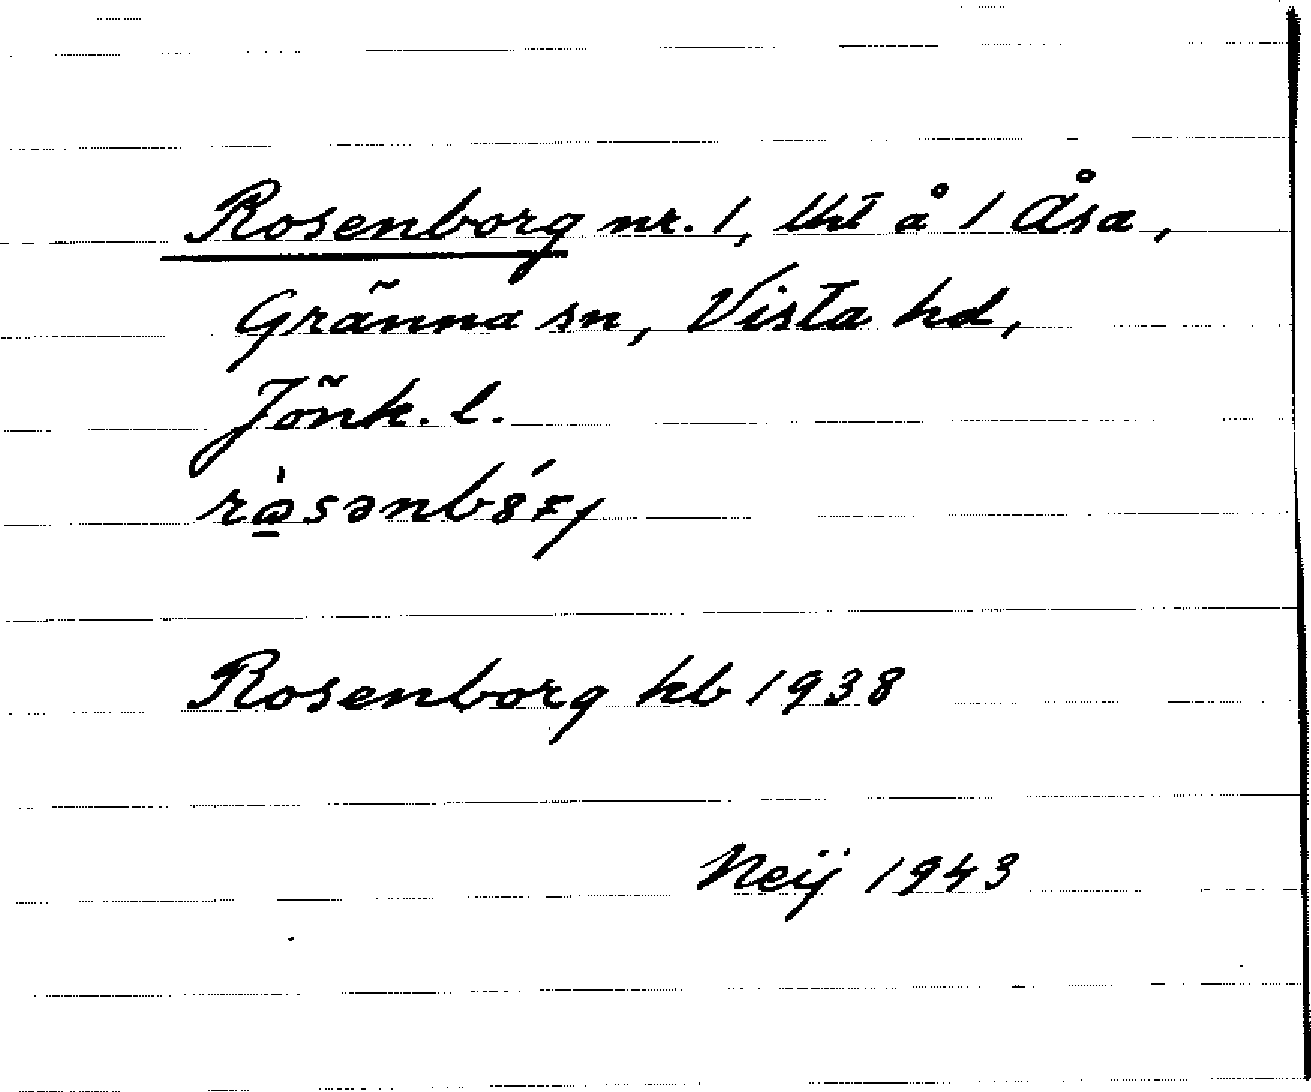 Rosenborg nr. 1, lht å 1 Åsa,
Gränna sn, Vista hd,
Jönk. l.
Rosenborg hb 1938
Neij 1943